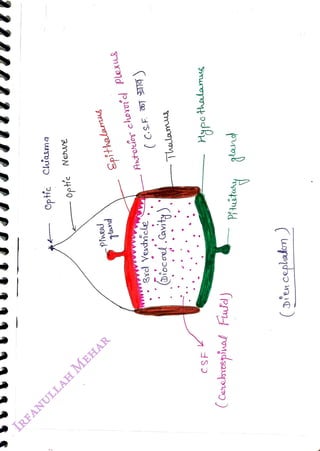 IRFANULLAH MEHAR
Optic Chiasma
Optic Nerve
Pineal
Gland
Epithalamus
Anterior choroid Plexus
( C.S.F. का स्राव )
3rd Ventricle
(Diocoel Cavity)
Thalamus
Hypothalamus
Pituitary gland
CSF
(Cerebrospinal Fluid)
( Diencephalon )